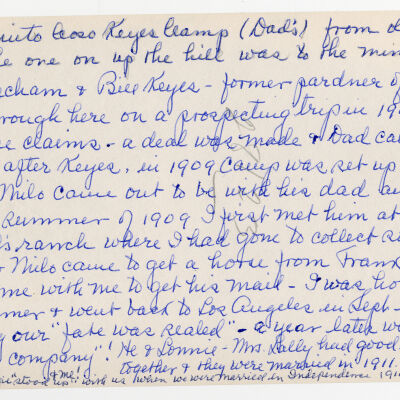 into Coso Keyes Camp (Dad's) from d
e one on up the hill was to the min
cham & Bill Keyes - former pardner of
rough here on a prospecting trip in 19
e claims - a deal was made & Dad ca
after Keyes, in 1909 Camp was set up
Milo came out to be with his dad an
summer of 1909 I first met him at
's ranch where I had gone to collect s
Milo came to get a horse from Frank
me with me to get his mail - I was ho
mer & went back to Los Angeles in Sept -
y our "fate was sealed" - a year later w
company"! He & Lonnie - Mrs. Lally had good
& me! together & they were married in 1911.
"stood up" with us when we were married in Independence 191